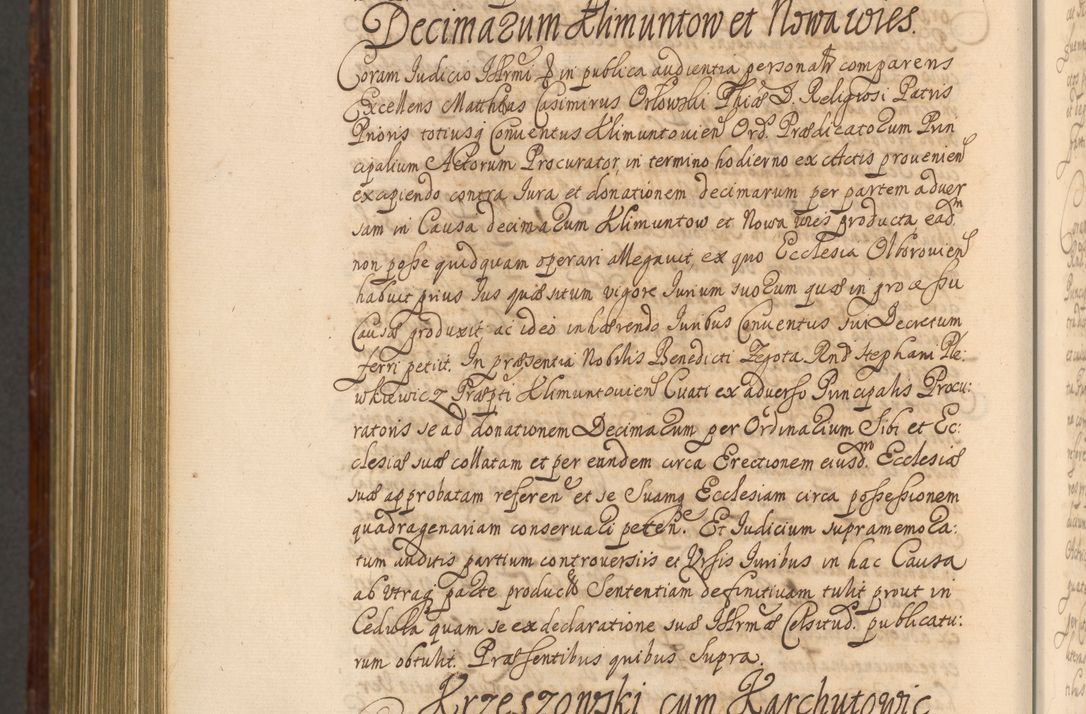 Decimarum Klimuntow et Nowawies.
Coram Iudicio Illrmi P in publica audientia personalr comparens
Excellens Matthæas Casimirus Orłowski Phiæ D. Religiosi Patris
Prioris totiusq Conventus Klimuntouien Ord. Prædicatorum Prin
cipalium Actorum Procurator, in termino hodierno ex Actis prouenien
excipiendo contra Iura et donationem decimarum per partem adver
sam in Causa decimarum Klimuntow et Nowa wies producta, eadm
non posse quidquam operari allegavit, ex quo Ecclesia Olborouien
habuit prius Ius quæsitum vigore Iurium suorum quæ in processu
Causæ produxit ac ideo inhærendo Iuribus Conventus sui Decretum
ferri petiit. In præsentia Nobilis Benedicti Zegota Rnd Stephani Ple:
wkiewicz Præpti Klimuntouien Curati ex adverso Principalis Procu:
ratoris se ad donationem Decimarum per Ordinarium Sibi et Ec:
clesiæ suæ collatam et per eandem circa Erectionem eiusdm Ecclesiæ
suæ approbatam referen et se Suamq Ecclesiam circa possessionem
quadragenariam conservari peten. Et Iudicium supramemora:
tum auditis partium controversiis et Visis Iuribus in hac Causa
ab utraq parte productis Sententiam definitivam tulit prout in
Cedula quam se ex declaratione suæ Illrmæ Celsitud. publicatu:
rum obtulit. Præsentibus quibus supra.
Krzeszowski cum Karchutowic